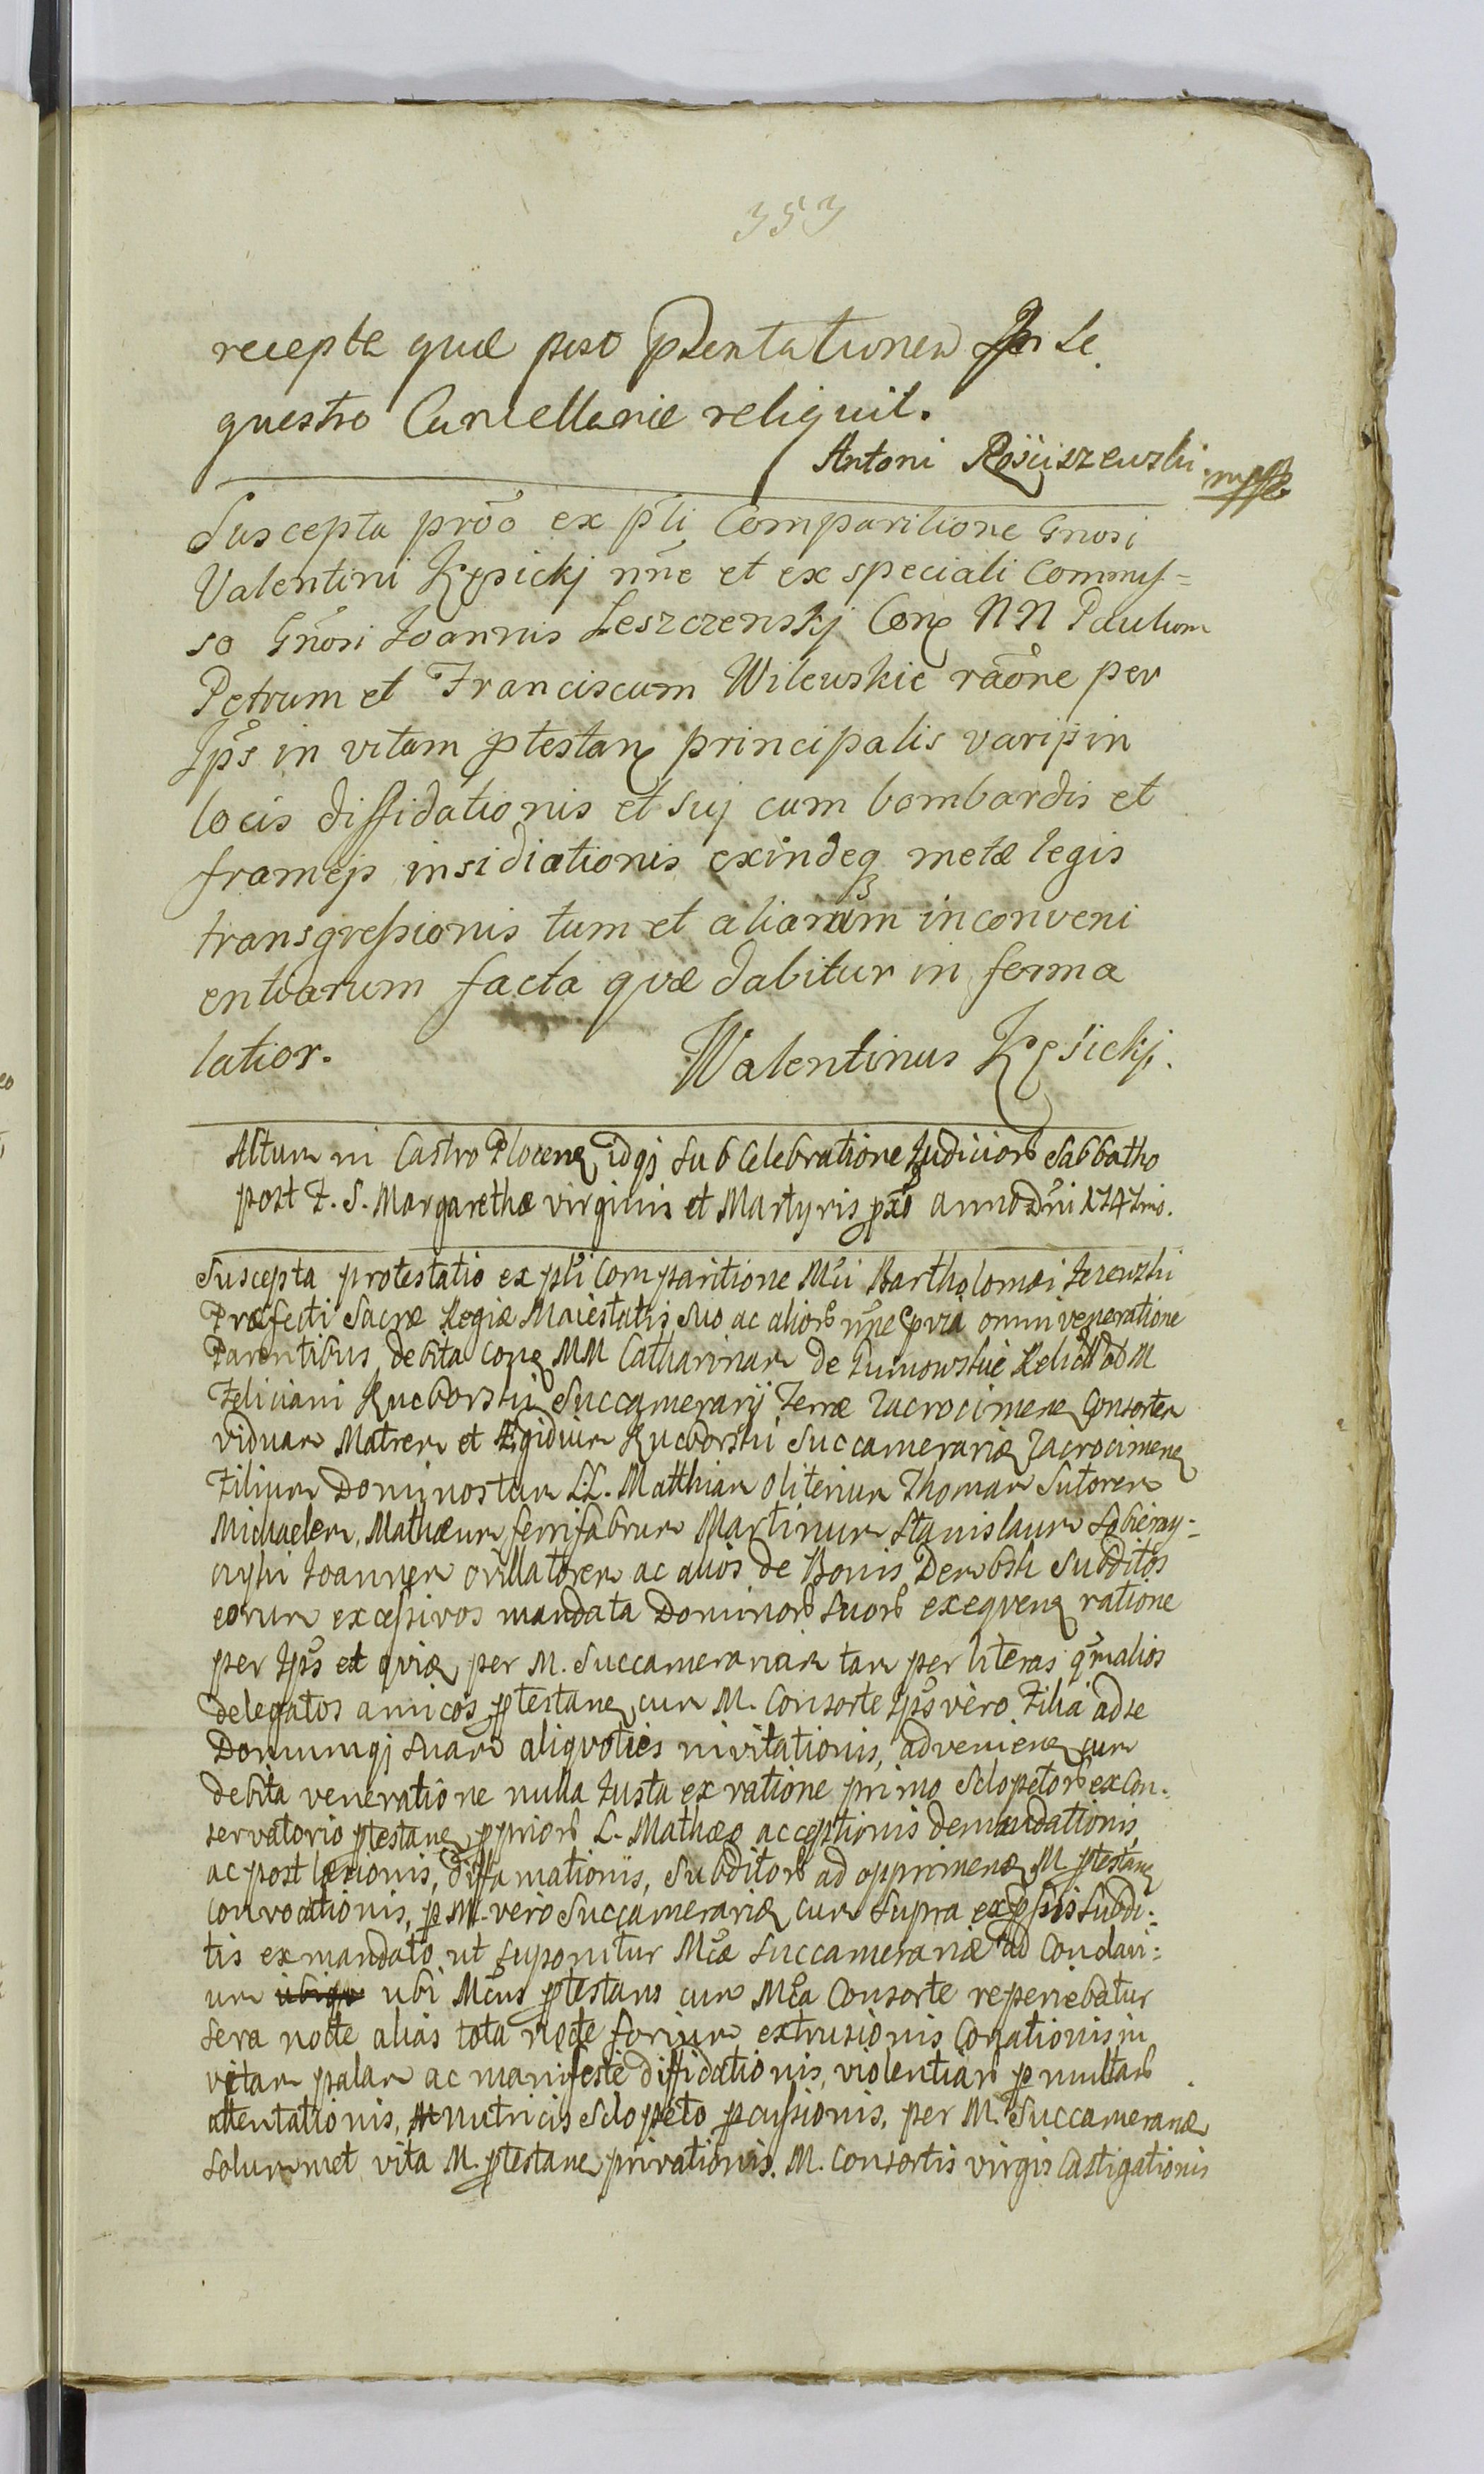 353
recepta quæ post pñtentationem in Se
questro Cancellariæ reliquit.
Antoni Rościszewski mpp
Suscepta prõo ex pti Comparitione Gnosi
Valentini Kęsickj nñe et ex speciali Commis=
so Gñosi Joannis Leszczenskj Con NN Paulum
Petrum et Franciscum Wilewskie raõne per
Ips in vitam ptestan principalis varijs in
locis diffidationis et suj cum bombardis et
frameis insidiationis exindeq metæ legis
transgressionis tum et aliarum inconveni
entiarum facta quæ dabitur in forma
latior.
Walentinus Kęsickj.
Actum in Castro Plocen idqj sub Celebratione Judicior Sabbatho
post F. S. Margarethæ virginis et Martyris pxo anno Dni 1747mo.
Suscepta protestatio ex pti Comparitione Mci Bartholomæi
Præfecti Sacræ Regiæ Maiestatis suo ac alior nñe pvia omni veneratione
Parentibus debita con MM Catharinam de Relictā ol M
Feliciani Kucborski Succamerarij Terræ Zacrocimen Consortem
viduam Matrem et Ægidium Kucborski Succamerariæ Zacrocimen
Filium Dominos tum LL. Matthiam Thomam Sutorem
Michaelem, Mathæum ferrifabrum Martinum Stanislaum Sobieray=
czyki Joannem ac alios de Bonis Dembsk Subditos
eorum excessivos mandata Dominor suor exequen ratione
per Ips et quiæ per M. Succamerariam tam per literas qm alios
delegatos amicos ptestan cum M. Consorte Ips vero Filia ad se
Domumqj suam aliqvoties invitationis, advenien cum
debita veneratione nulla Justa ex ratione primo Sclopetor ex Con=
servatorio ptestan pprior L. Mathæo acceptionis demandationis,
ac post læsionis, diffamationis, Subditor ad opprimen M. ptestan
convocationis, p M. vero Succamerariæ cum supra expssis Subdi=
tis ex mandato ut suponitur Mcæ Succamerariæ ad Conclavi=
um ubi Mcus ptestans cum Mca Consorte reperiebatur
sera nocte alias tota nocte forium extrusionis Conationis in
vitam palam ac manifeste diffidationis, violentiar p multar
attentationis, nutricis Sclopeto pcussionis, per M. Succameran
solummet vita M. ptestan privationis. M. Consortis virgis Castigationis